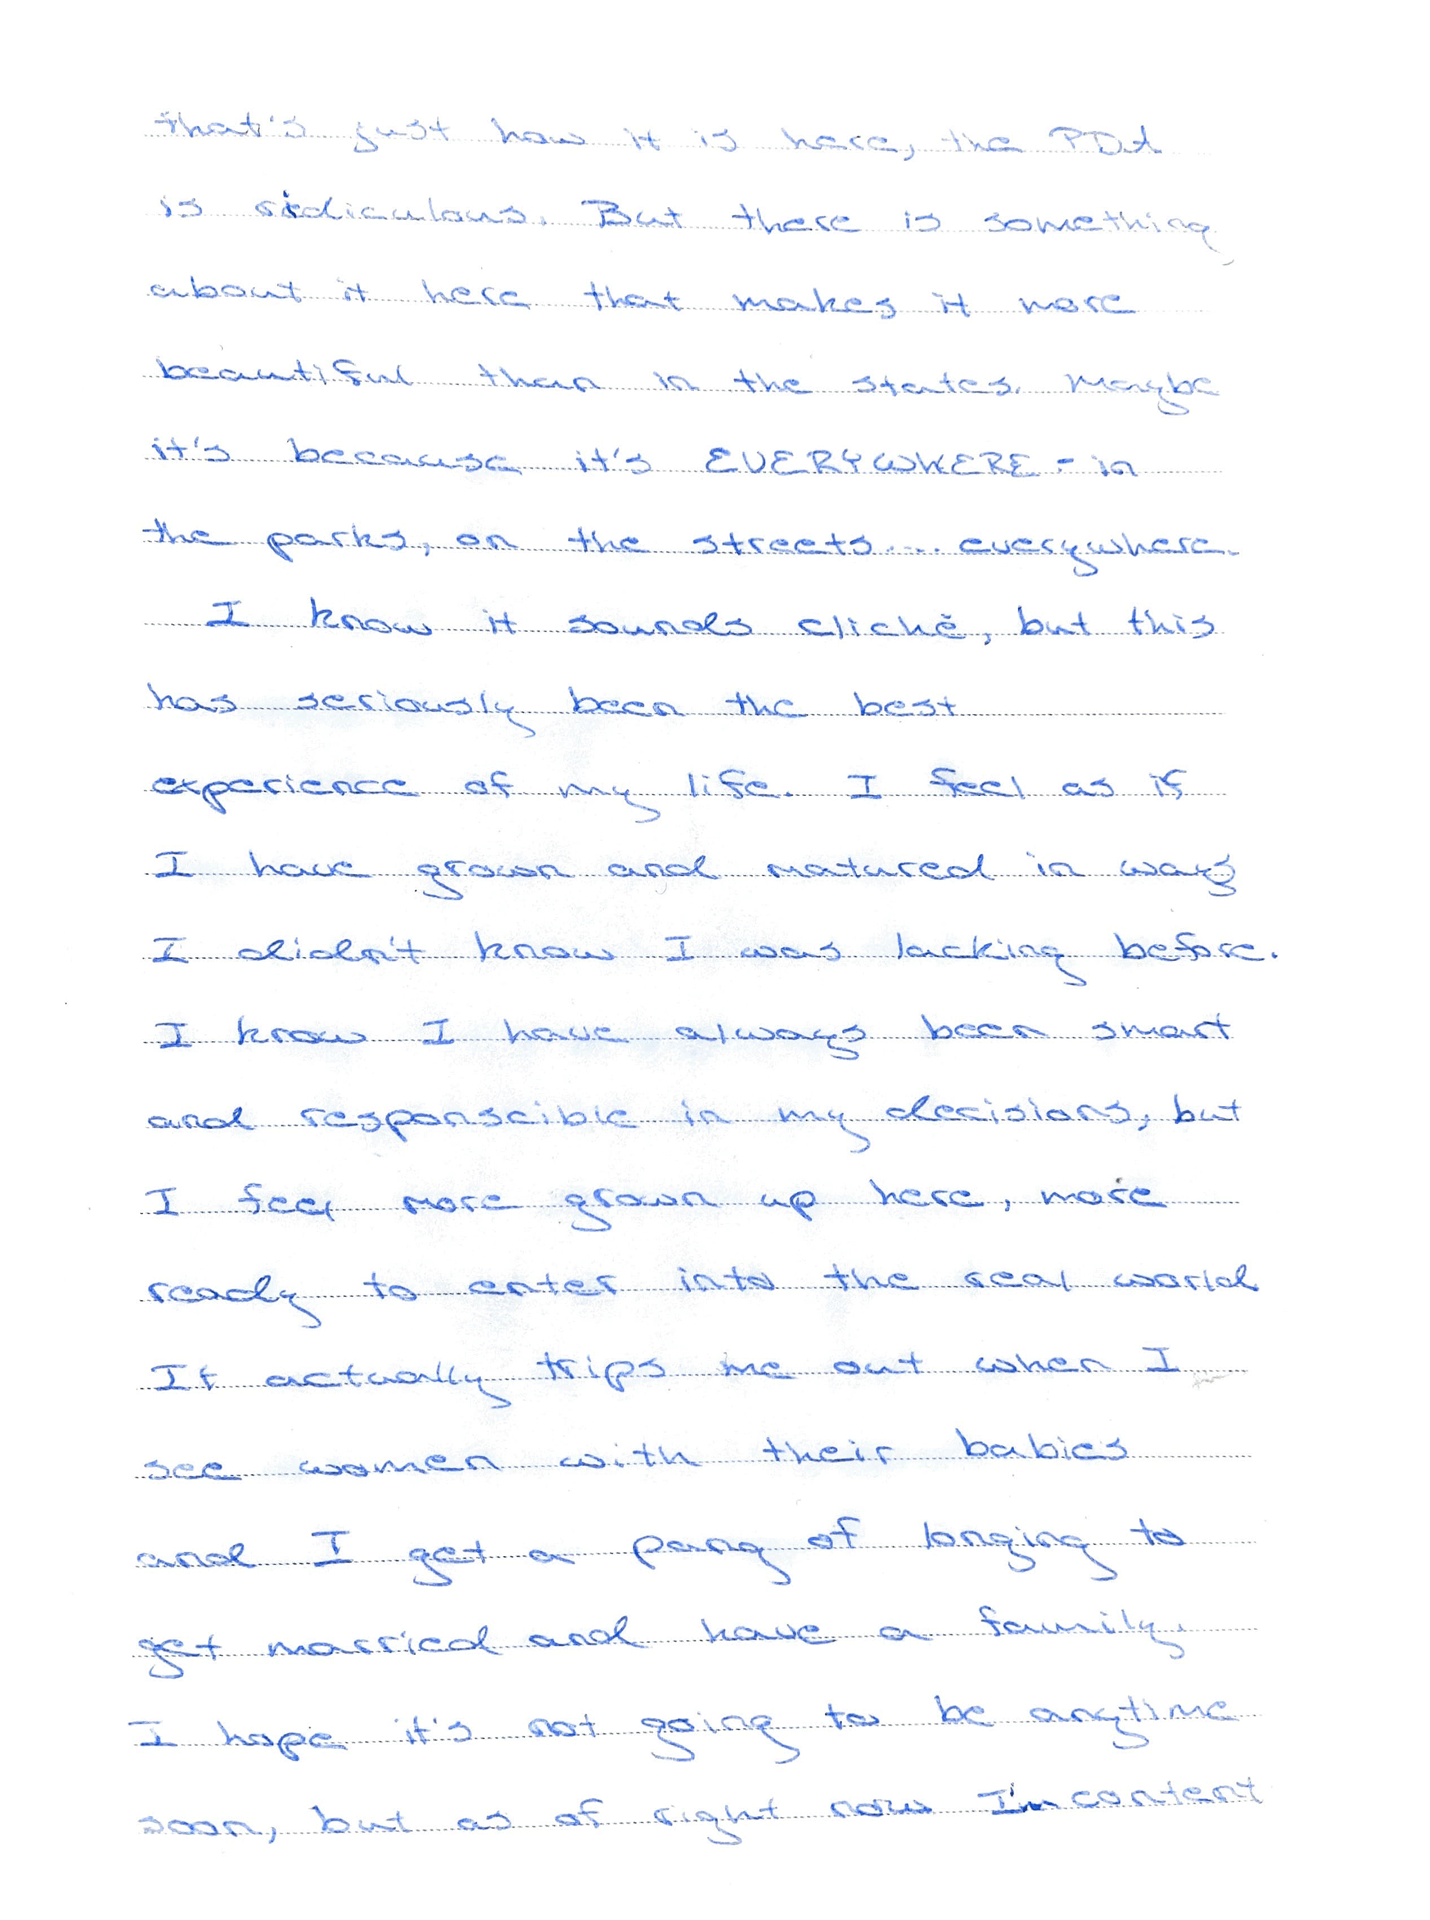 that's just how it is here, the PDA
is ridiculous. But there is something
about it here that makes it more
beautiful than in the states. Maybe
it's because it's EVERYWHERE - in
the parks, on the streets... everywhere.
I know it sounds cliché, but this
has seriously been the best
experience of my life. I feel as if
I have grown and matured in ways
I didn't know I was lacking before.
I know I have always been smart
and responscible in my decisions, but
I feel more grown up here, more
ready to enter into the real world
It actually trips me out when I
see women with their babies
and I get a pang of longing to
get married and have a family.
I hope it's not going to be anytime
soon, but as of right now I'm content